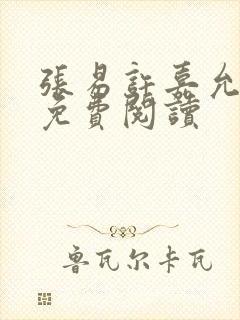 張易許嘉允
免費閱讀
魯瓦尔卡瓦